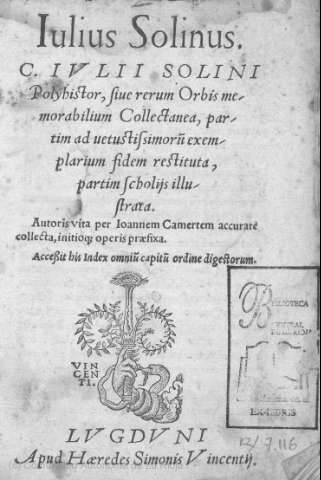 Iulius Solinus.
C. IVLII SOLINI
Polyhistor, siue rerum Orbis me-
morabilium Collectanea, par-
tim ad uetustissimorũ exem-
plarium fidem restituta,
partim scholijs illu-
strata.
Autoris vita per Ioannem Camertem accuratè
collecta, initioq; operis præfixa.
Accessit his Index omniũ capitũ ordine digestorum.
VIN
CEN
TI.
BIBLIOTECA
CENTRAL
EX-LIBRIS
12/7.116
LVGDVNI
Apud Hæredes Simonis Vincentij.